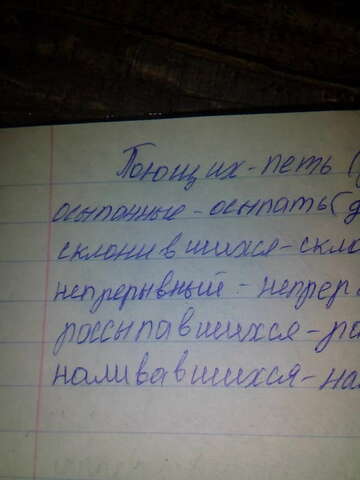 Поющих - петь (
осыпанные - осыпать (д
склонившихся - скло
непрерывный - непрер
рассыпавшихся - ра
наливавшихся - на